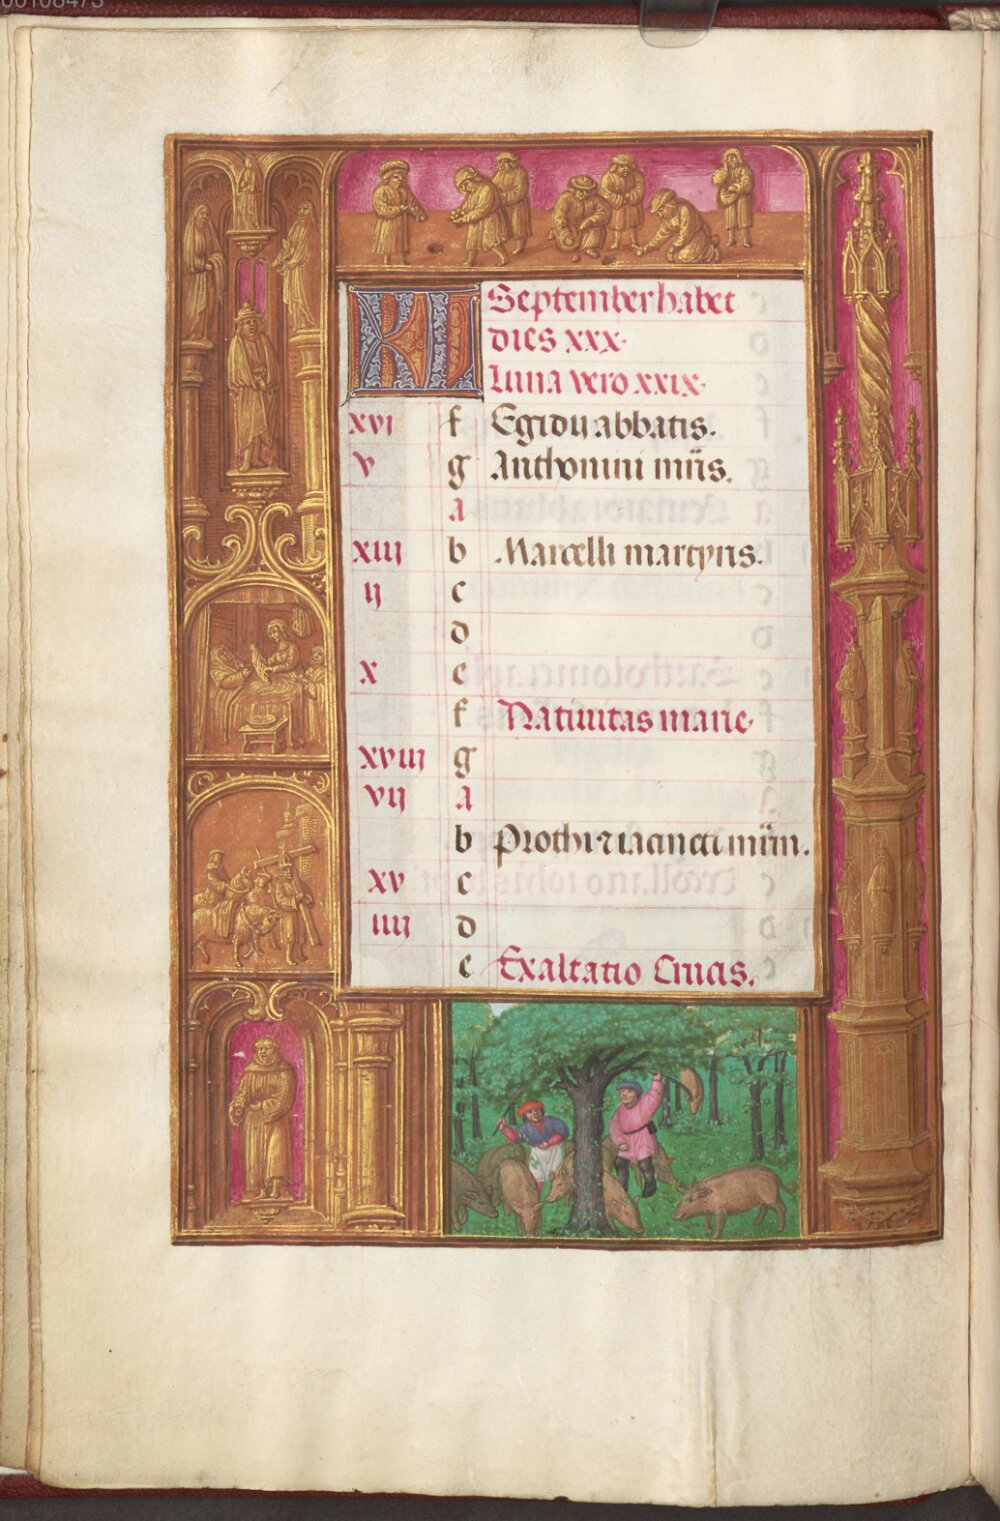 00108473
KL September habet
dies xxx.
Luna vero xxix.
xvi f Egidij abbatis.
v g Anthonini mr̃is.
a
xiij b Marcelli martyris.
ij c
d
x e
f Natiuitas marie.
xviij g
vij a
b Prothi ⁊ iacincti mr̃m.
xv c
iiij d
e Exaltatio Crucis.